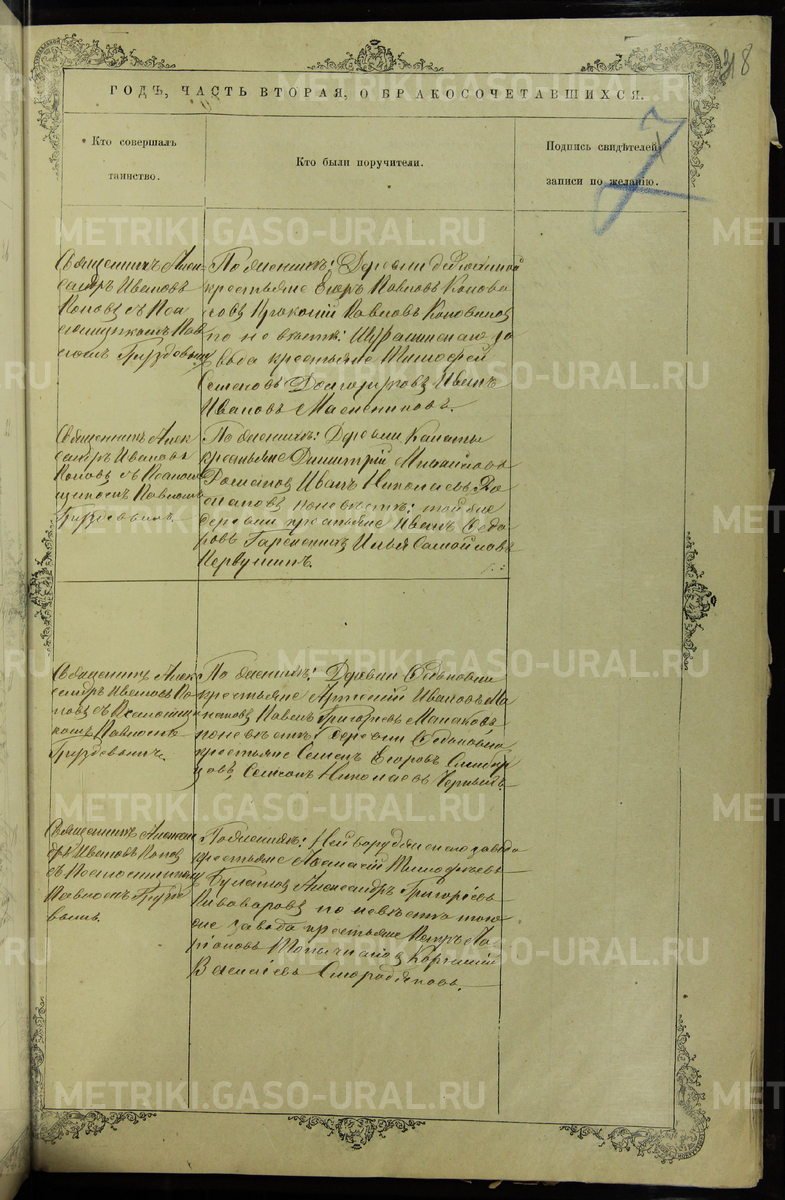 218
ГОДЪ, ЧАСТЬ ВТОРАЯ, О БРАКОСОЧЕТАВШИХСЯ.
Кто совершалъ
таинство.
Кто были поручители.
Подпись свидѣтелей
записи по желанію.
Священникъ Алек-
сандръ Ивановъ
Поповъ съ Пса
ломщикомъ Пав
ломъ Груздевымъ
По женихѣ: Деревни
крестьяне Егоръ Павловъ Конова
ловъ Прокопій Павловъ Коновалов
по невѣстѣ: Шуралинскаго за
вода крестьяне Тимофей
Семеновъ Долгоруковъ Иванъ
Ивановъ Масленниковъ.
Священникъ Алек
сандръ Ивановъ
Поповъ съ Псалом
щикомъ Павломъ
Груздевымъ.
По женихѣ: Деревни
крестьяне Димитрій Михайловъ
Романовъ Иванъ Николаевъ Ро
мановъ по невѣстѣ: той же
деревни крестьяне Иванъ Федо
ровъ Илья Самойловъ
Первушинъ.
Священникъ Алек
сандръ Ивановъ По
повъ съ Псаломщи
комъ Павломъ
Груздевымъ.
По женихѣ: Деревни
крестьяне Артемій Ивановъ Ма
наковъ Павелъ Григорьевъ Манаковъ
по невѣстѣ: деревни
крестьяне Семенъ Егоровъ
Николаевъ
Священникъ Алексан
дръ Ивановъ Поповъ
съ Псаломщикомъ
Павломъ Грузде
вымъ.
По женихѣ: Нейворудянскаго завода
крестьяне Афанасій Тимофѣевъ
Булатовъ Александръ Григорьевъ
Пивоваровъ по невѣстѣ: того
же завода крестьяне Петръ Ла
ріоновъ
Василіевъ Смородяковъ.
METRIKI.GASO-URAL.RU